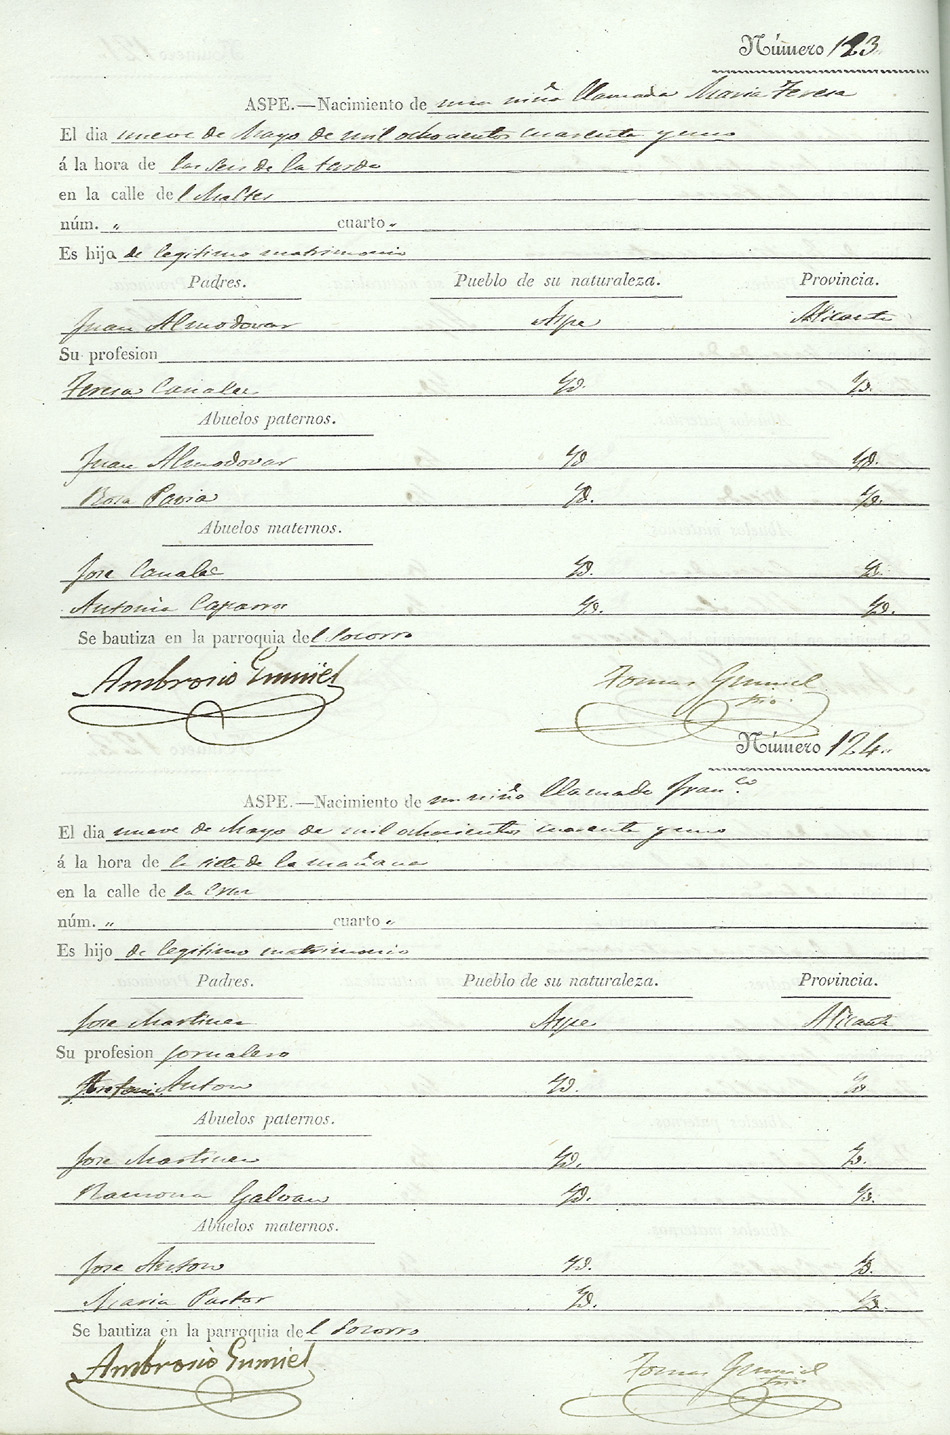 Número 123
ASPE.—Nacimiento de una niña llamada Maria Teresa
El dia nueve de Mayo de mil ochocientos cuarenta y uno
á la hora de las seis de la tarde
en la calle del
núm. " cuarto "
Es hija de legitimo matrimonio
Padres. Pueblo de su naturaleza. Provincia.
Juan Almodovar Aspe Alicante
Su profesion
Teresa Canales Yd. Yd.
Abuelos paternos.
Juan Almodovar Yd Yd.
Rosa Pavia Yd. Yd.
Abuelos maternos.
Jose Canales Yd. Yd.
Antonia Caparros Yd. Yd.
Se bautiza en la parroquia del Socorro
Ambrosio Gumiel Tomas Gumiel
Srio.
Número 124.
ASPE.—Nacimiento de un niño llamado Fran.co
El dia nueve de Mayo de mil ochocientos cuarenta y uno
á la hora de la siete de la mañana
en la calle de la Cruz
núm. " cuarto "
Es hijo de legitimo matrimonio
Padres. Pueblo de su naturaleza. Provincia.
Jose Martinez Aspe Alicante
Su profesion Jornalero
Anton Yd. Yd.
Abuelos paternos.
Jose Martinez Yd. Yd.
Ramona Galvan Yd. Yd.
Abuelos maternos.
Jose Anton Yd. Yd.
Maria Pastor Yd. Yd.
Se bautiza en la parroquia del Socorro
Ambrosio Gumiel Tomas Gumiel
Srio